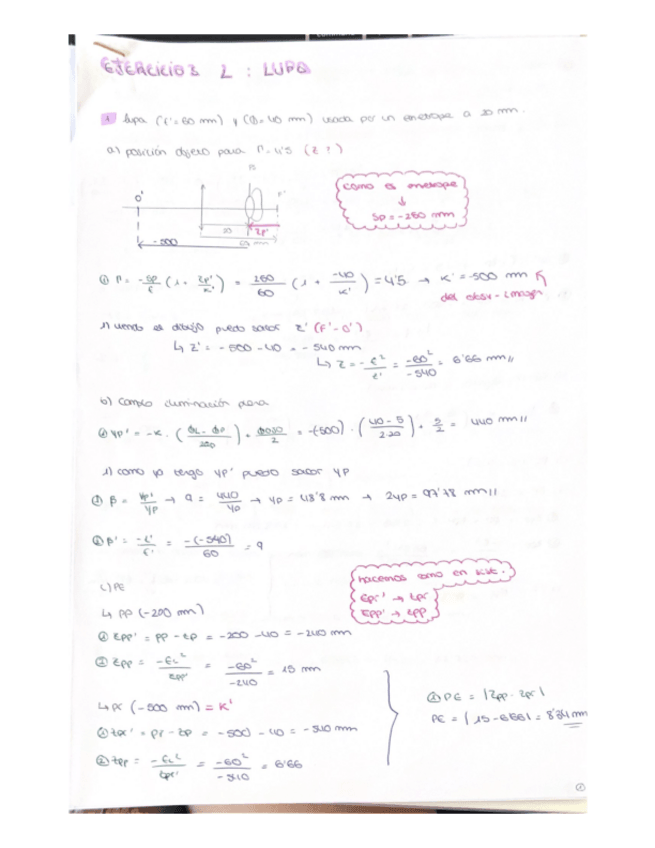 EJERCICIOS 2 : LUPA
1 lupa (f'=60 mm) y (Ø=40 mm) usada por un emetrope a 20 mm.
a) posición objeto para Γ=4'5 (z?)
como es emetrope
↓
Sp = -250 mm
O'
F'
20
zp'
-500
① Γ = -Sp/f' (1 + zp'/k') = 250/60 (1 + -40/k') = 4'5 → k' = -500 mm
del obsv - imagen
1) viendo el dibujo puedo sacar z' (F'-O')
↳ z' = -500 - 40 = -540 mm
↳ z = -f'²/z' = -60²/-540 = 6'66 mm //
b) campo iluminación
② yp' = -k · ( ) + /2 = -(-500) · (40 - 5/2·20) + 5/2 = 440 mm //
1) como ya tengo yp' puedo sacar yp
① β = yp'/yp → 9 = 440/yp → yp = 48'8 mm → 2yp = 97'78 mm //
② β' = -z'/f' = -(-540)/60 = 9
c) PE
↳ PP (-200 mm)
hacemos como en
zpr' → zpr
zpp' → zpp
① zpp' = pp - zp = -200 - 40 = -240 mm
② zpp = -fL²/zpp' = -60²/-240 = 15 mm
↳ PR (-500 mm) = k'
① zpr' = pr - zp = -500 - 40 = -540 mm
② zpp = -fL²/zpr' = -60²/-540 = 6'66
② PE = |zpp - zpr|
PE = |15 - 6'66| = 8'34 mm